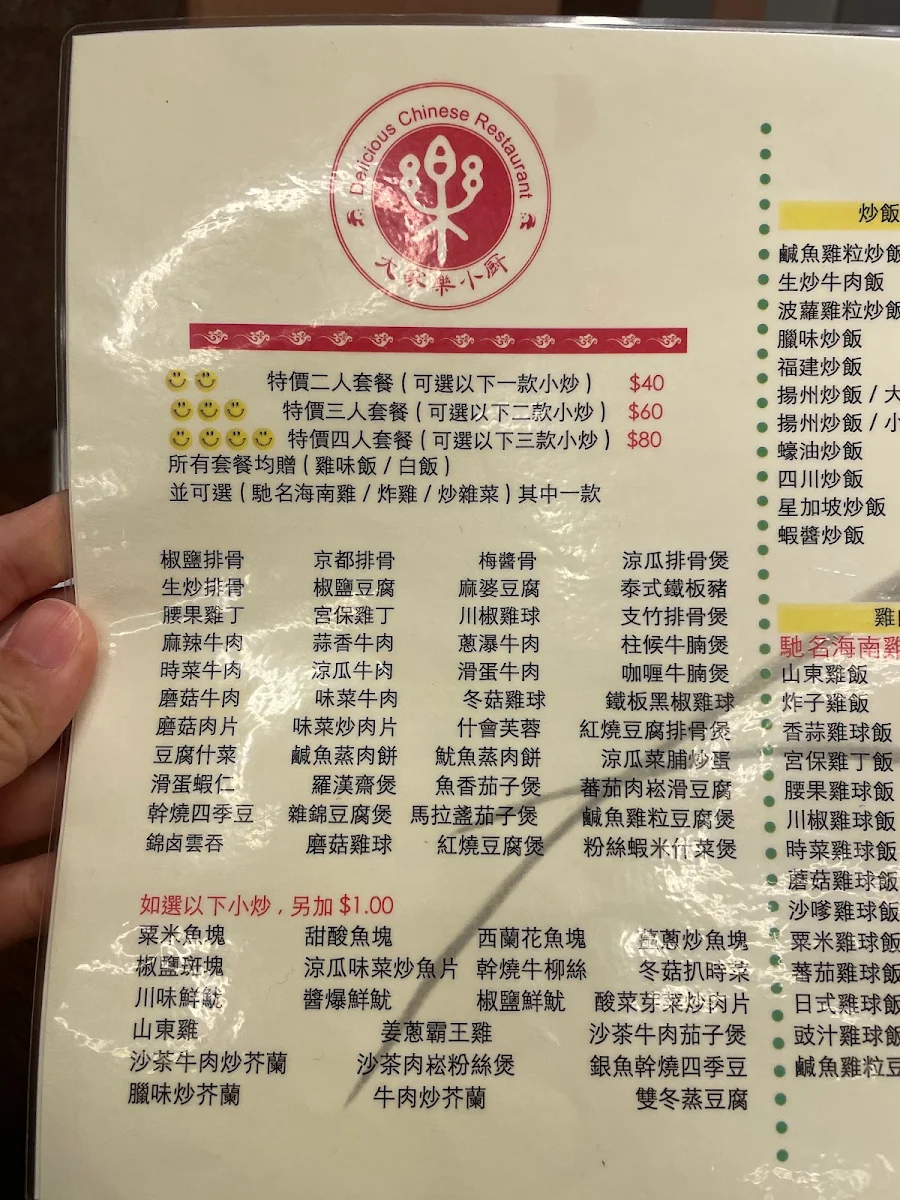 Delicious Chinese Restaurant
大家樂小厨
特價二人套餐 ( 可選以下一款小炒 ) $40
特價三人套餐 ( 可選以下二款小炒 ) $60
特價四人套餐 ( 可選以下三款小炒 ) $80
所有套餐均贈 ( 雞味飯 / 白飯 )
並可選 ( 馳名海南雞 / 炸雞 / 炒雜菜 ) 其中一款
椒鹽排骨 京都排骨 梅醬骨 涼瓜排骨煲
生炒排骨 椒鹽豆腐 麻婆豆腐 泰式鐵板豬
腰果雞丁 宮保雞丁 川椒雞球 支竹排骨煲
麻辣牛肉 蒜香牛肉 蔥瀑牛肉 柱候牛腩煲
時菜牛肉 涼瓜牛肉 滑蛋牛肉 咖喱牛腩煲
磨菇牛肉 味菜牛肉 冬菇雞球 鐵板黑椒雞球
磨菇肉片 味菜炒肉片 什會芙蓉 紅燒豆腐排骨煲
豆腐什菜 鹹魚蒸肉餅 魷魚蒸肉餅 涼瓜菜脯炒蛋
滑蛋蝦仁 羅漢齋煲 魚香茄子煲 蕃茄肉崧滑豆腐
幹燒四季豆 雜錦豆腐煲 馬拉盞茄子煲 鹹魚雞粒豆腐煲
錦卤雲吞 磨菇雞球 紅燒豆腐煲 粉絲蝦米什菜煲
如選以下小炒 , 另加 $1.00
粟米魚塊 甜酸魚塊 西蘭花魚塊 薑蔥炒魚塊
椒鹽斑塊 涼瓜味菜炒魚片 幹燒牛柳絲 冬菇扒時菜
川味鮮魷 醬爆鮮魷 椒鹽鮮魷 酸菜芽菜炒肉片
山東雞 姜蔥霸王雞 沙茶牛肉茄子煲
沙茶牛肉炒芥蘭 沙茶肉崧粉絲煲 銀魚幹燒四季豆
臘味炒芥蘭 牛肉炒芥蘭 雙冬蒸豆腐
炒飯
鹹魚雞粒炒飯
生炒牛肉飯
波蘿雞粒炒飯
臘味炒飯
福建炒飯
揚州炒飯 / 大
揚州炒飯 / 小
蠔油炒飯
四川炒飯
星加坡炒飯
蝦醬炒飯
雞
馳名海南雞
山東雞飯
炸子雞飯
香蒜雞球飯
宮保雞丁飯
腰果雞球飯
川椒雞球飯
時菜雞球飯
蘑菇雞球飯
沙嗲雞球飯
粟米雞球飯
蕃茄雞球飯
日式雞球飯
豉汁雞球飯
鹹魚雞粒豆